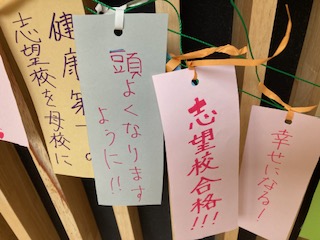 健康第一。
志望校を母校に
頭よくなります
ように!!
志望校合格!!!
幸せになる!